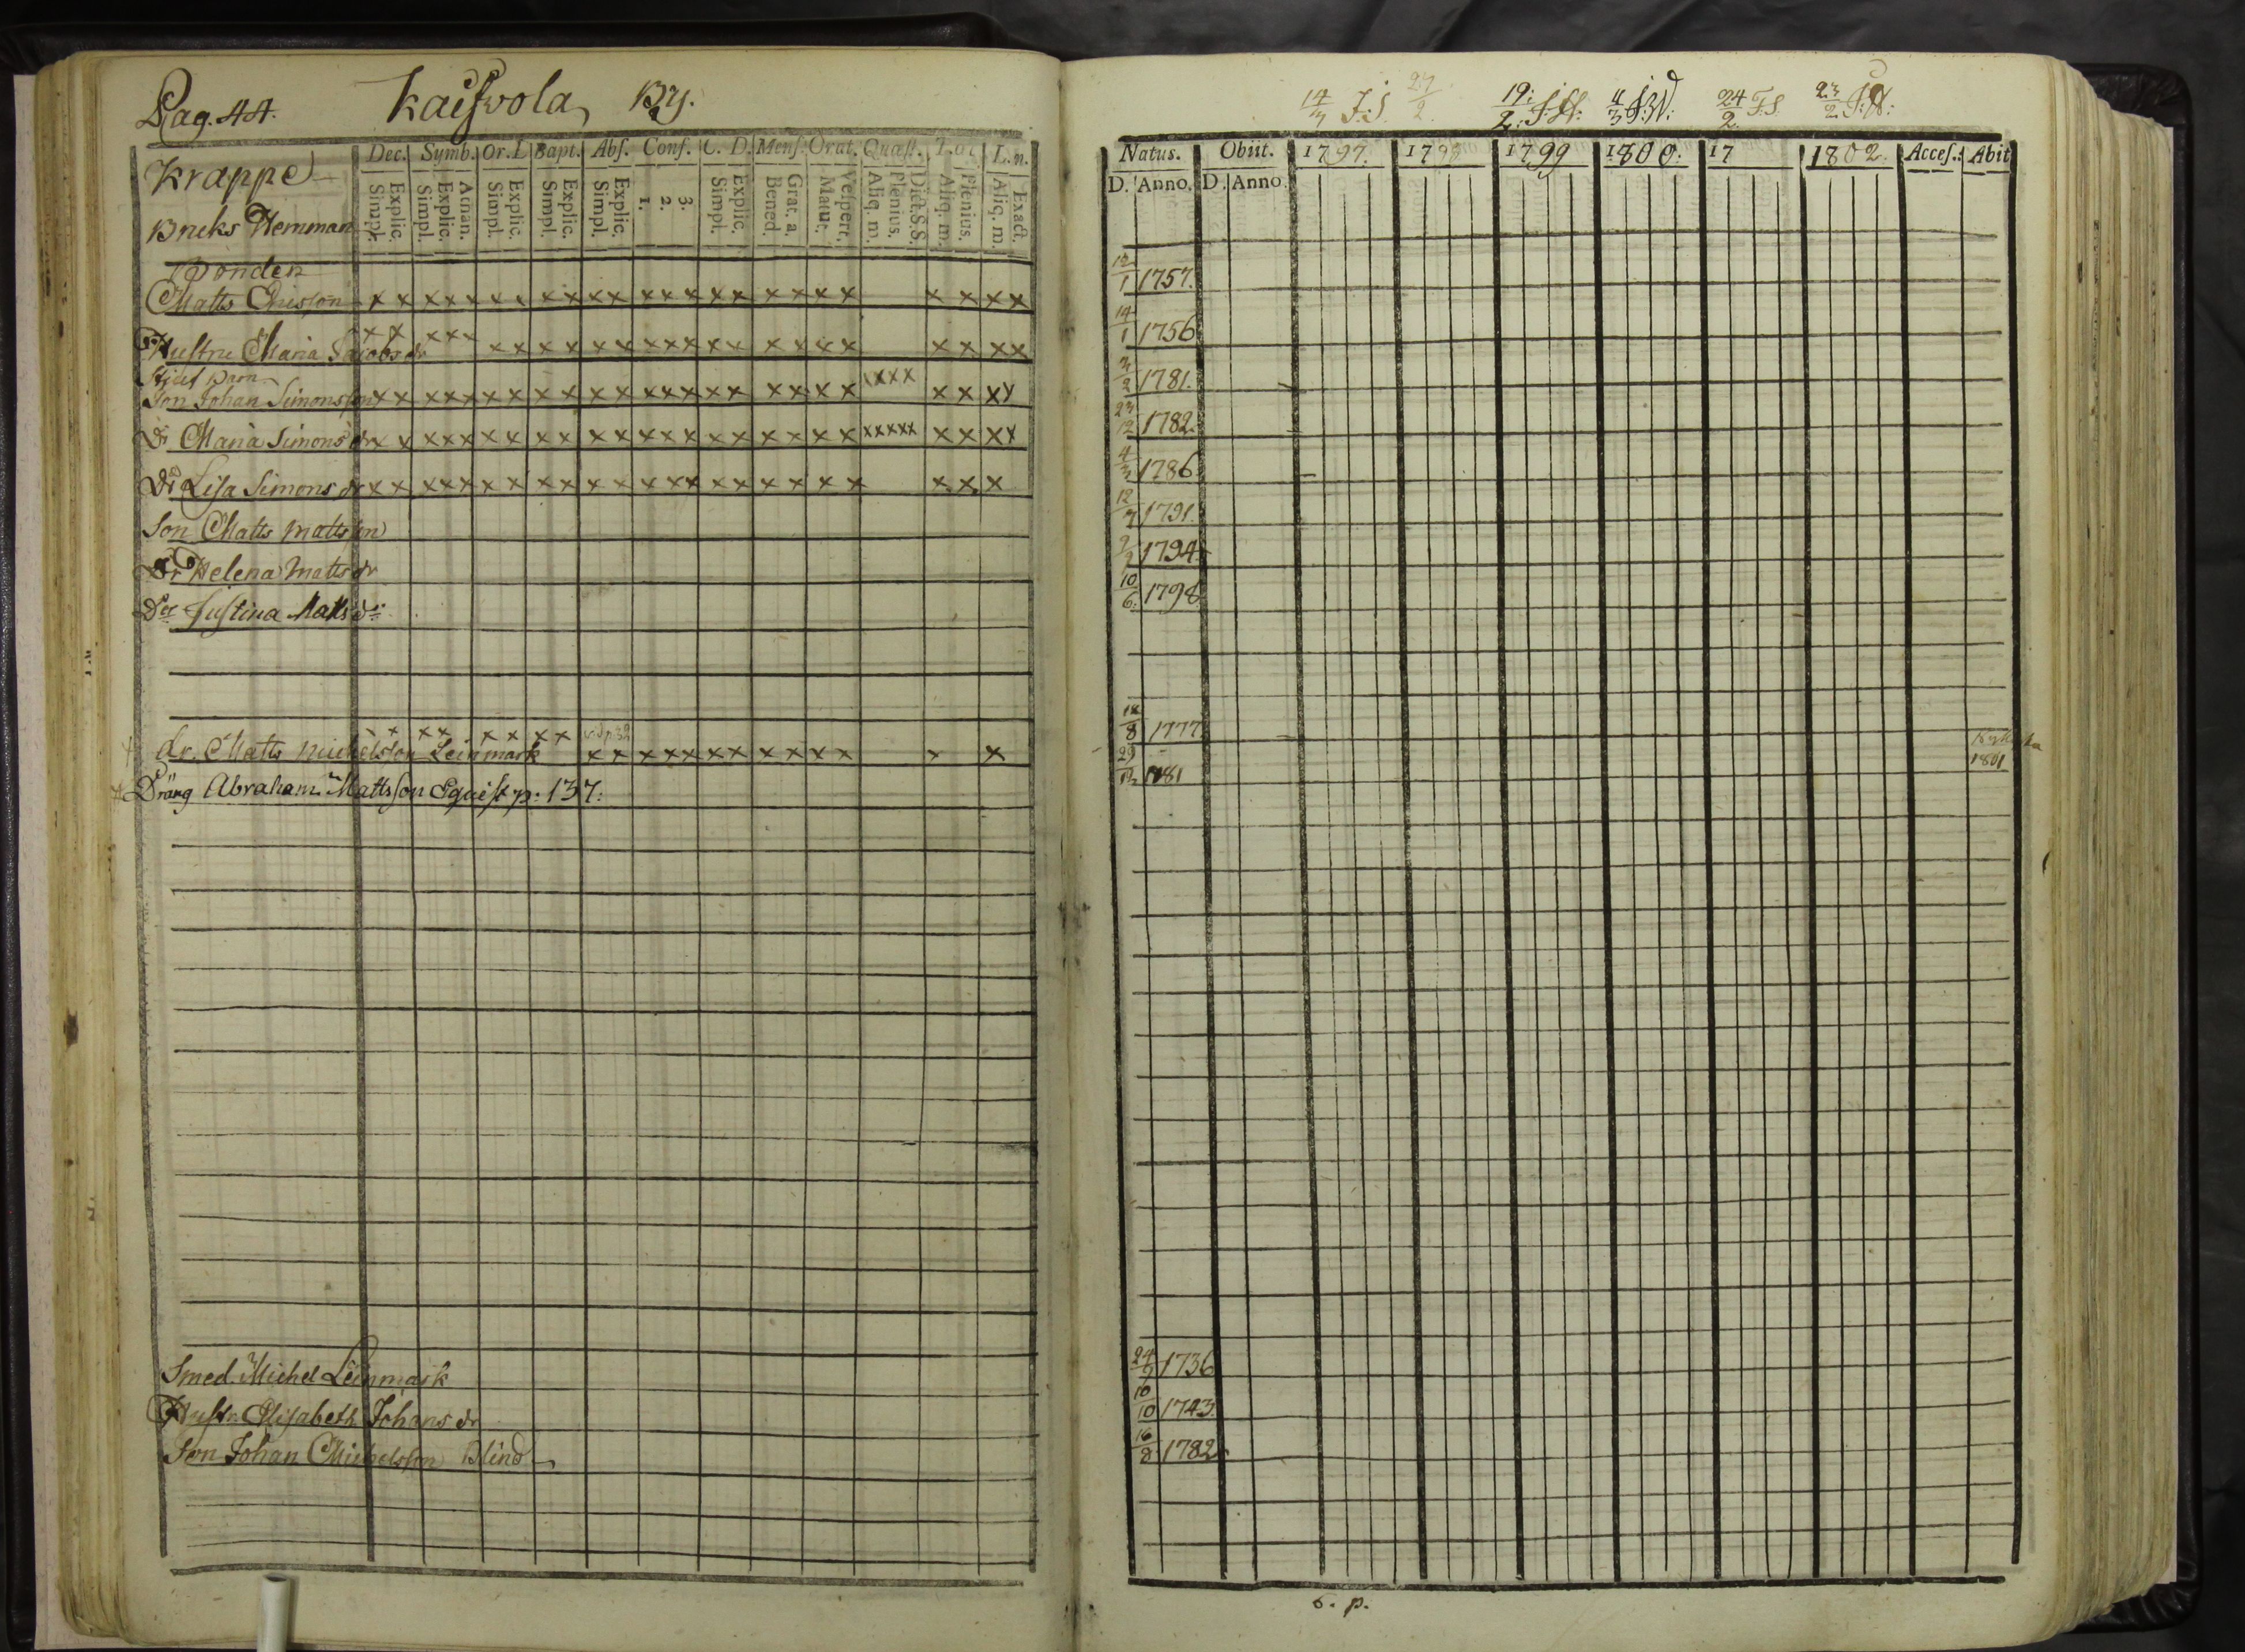 Pag. 44. Kaisvola By.
Krappe
Bruks Hemman
Dec. Symb. Or. D. Bapt. Abs. Conf. C. D. Mens. Orat. Quæst. L. n.
Explic. Simpl. Athan. Explic. Simpl. Explic. Simpl. Explic. Simpl. Explic. Simpl. 3. 2. 1. Explic. Simpl. Grat. a. Bened. Vespert. Matut. Dict. S. S. Plenius. Aliq. m. Plenius. Aliq. m. Exact. Aliq. m.
Bonden
Matts Ericsson x x x x x x x x x x x x x x x x x x x x x x x
Hustru Maria Jacobs dr x x x x x x x x x x x x x x x x x x x x x x x
Stjuf Barn
Son Johan Simonsson x x x x x x x x x x x x x x x x x x x x x x x x x x x
Dr Maria Simons dr x x x x x x x x x x x x x x x x x x x x x x x x x x x x
Dr Lisa Simons dr x x x x x x x x x x x x x x x x x x x x x x
Son Matts Mattsson
Dr Helena Matts dr
Dr Justina Mats dr
dr. Matts Michelsson Leinmark x x x x x x x x x x x x x x x x x x x x x
Dräng Abraham Mattsson Eqvist p: 137:
Smed Michel Leinmark
Hustr. Elisabeth Johans dr
Son Johan Michelsson Blind
14/3 J. S. 27/2. 19:/2: 4/3 24/2. F. S. 23/2.
Natus. Obiit. 1797. 1798 1799 1800. 17 1802. Acces. Abit
D. Anno. D. Anno.
12/1 1757.
14/1 1756
3/2 1781.
23/12 1782.
4/3 1786
12/7 1791.
2/2 1794
10/6. 1798
18/8 1777
29/12 1781 1801
24/9 1736
10/10 1743.
16/8 1782
s. p.